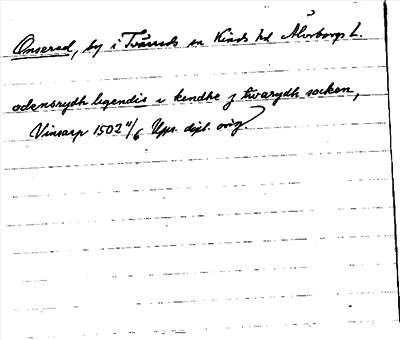 Omserud, by i Tvärreds sn Kinds hd Älvsborgs L.
odensrydh legendis i kendhe j twarydh socken,
Vinsarp 1502 11/6 Upps. dipl. orig.